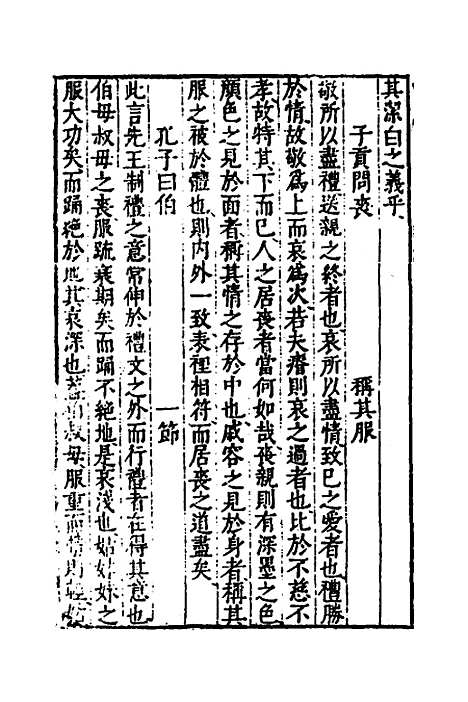 其潔白之義乎
子貢問喪　稱其服
敬所以盡禮送親之終者也哀所以盡情致已之愛者也禮勝
於情故敬爲上而哀爲次若夫瘠則哀之過者也比於不慈不
孝故特其下而已人之居喪者當何如哉喪親則有深墨之色
顏色之見於面者稱其情之存於中也戚容之見於身者稱其
服之被於體也則内外一致表裡相符而居喪之道盡矣
孔子曰伯　一節
此言先王制禮之意常伸於禮文之外而行禮者在得其意也
伯母叔母之喪服疏衰期矣而踊不絶地是哀淺也姑姊妹之
服大功矣而踊絶於地其哀深也蓋伯叔母服重而情則輕姑